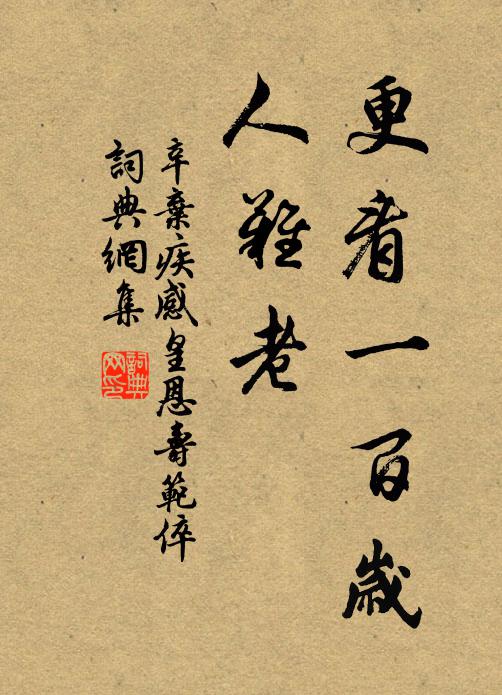 更看一百歲
人難老
辛棄疾感皇恩壽範倅
詞典網集
詞典网印